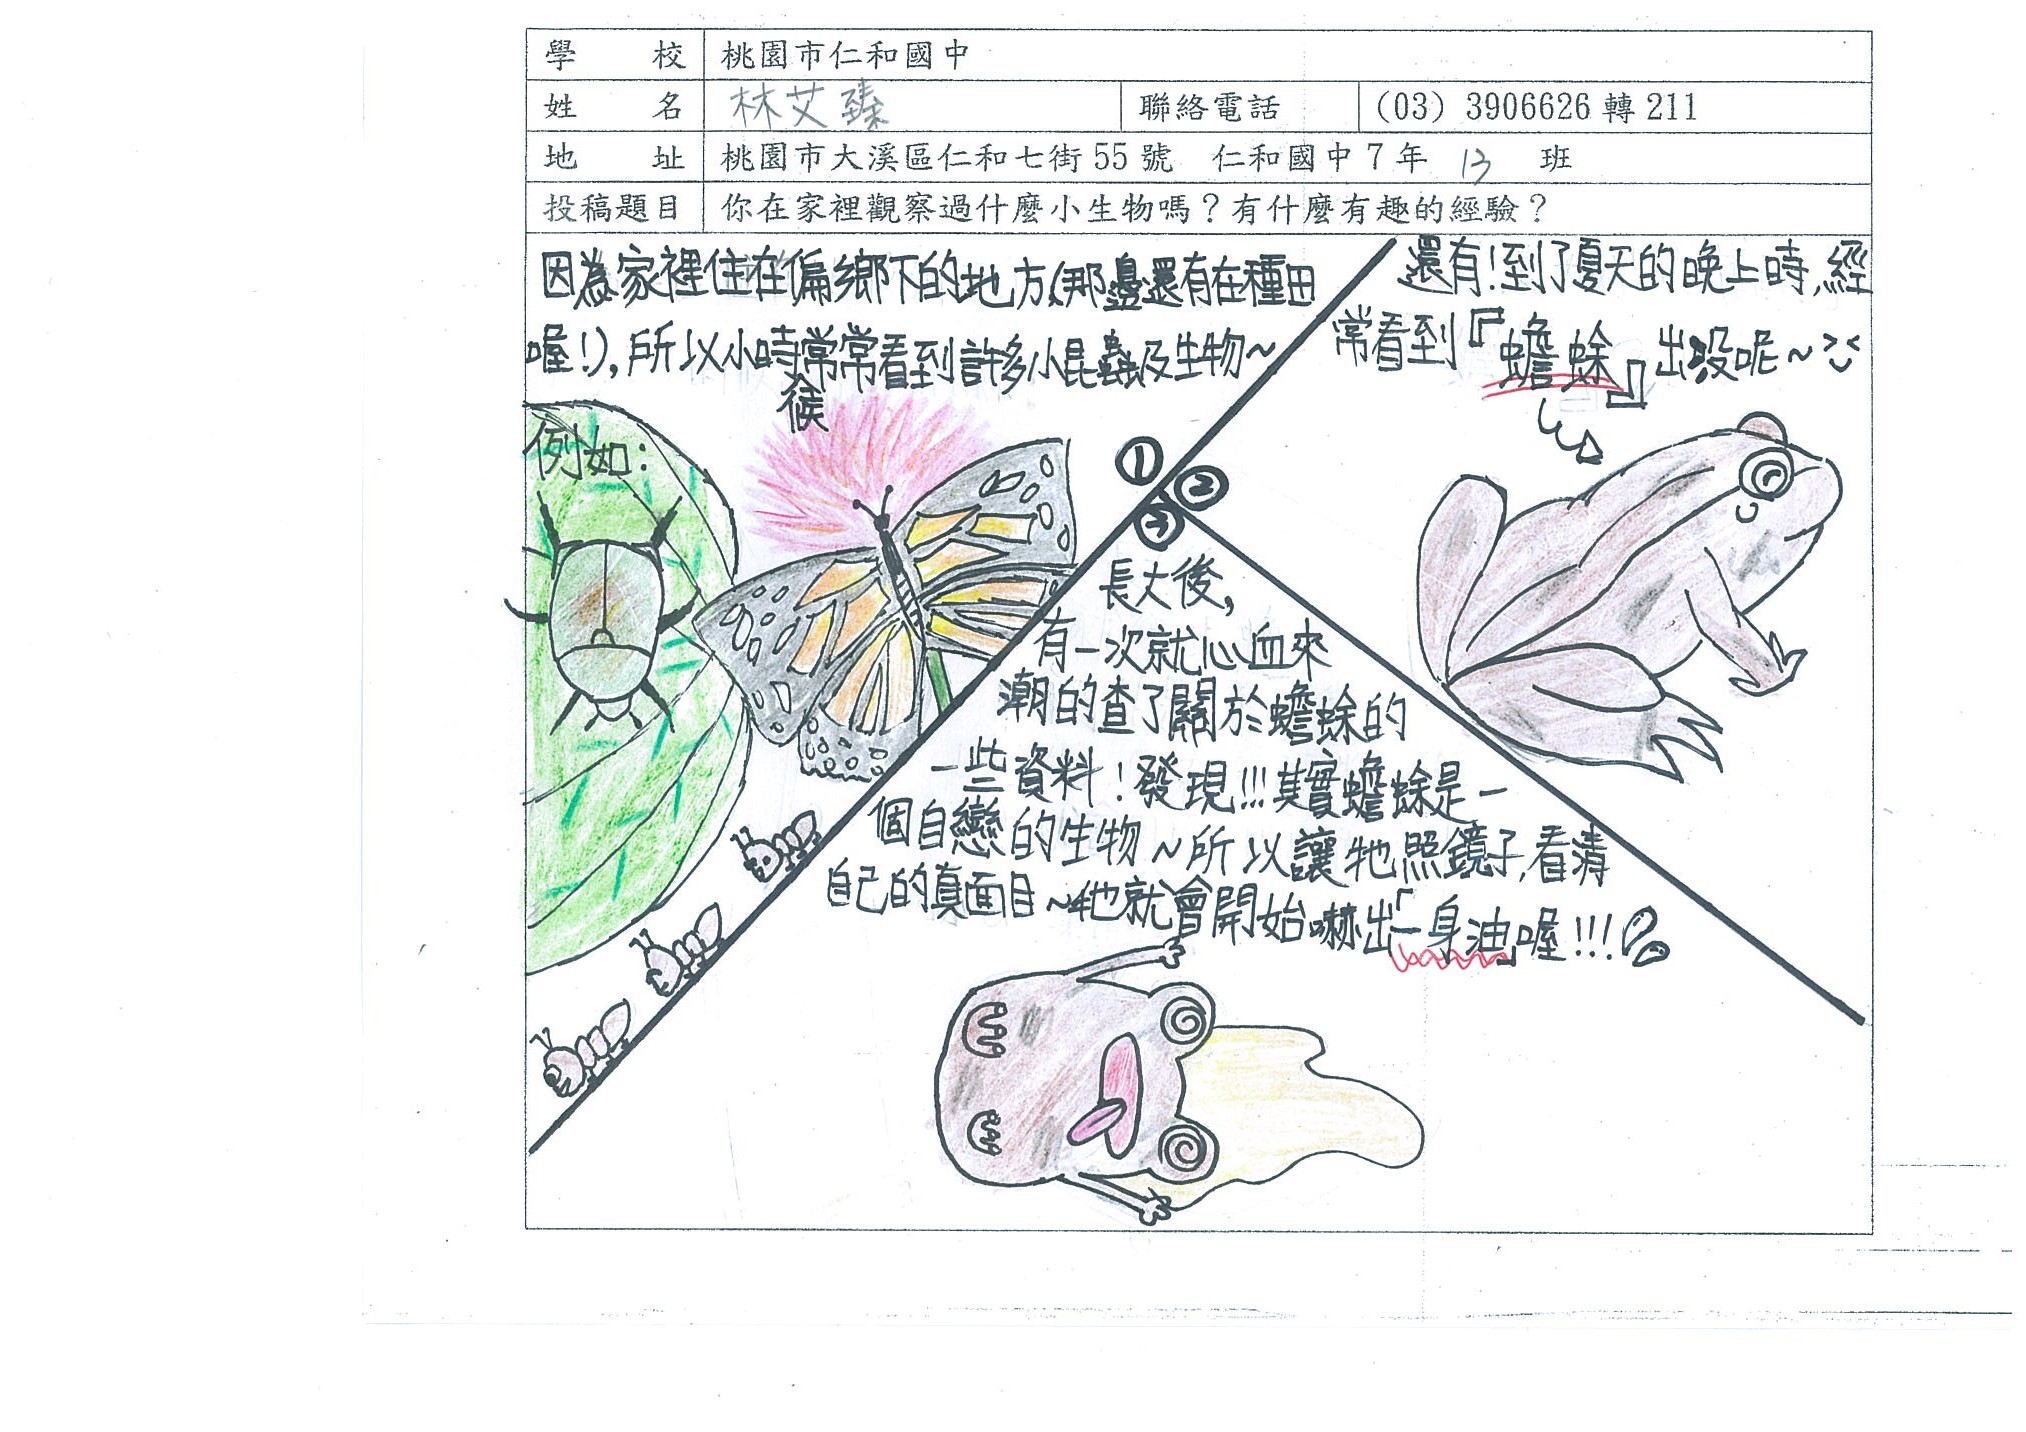 學 校 桃園市仁和國中
姓 名 林艾臻 聯絡電話 (03) 3906626 轉 211
地 址 桃園市大溪區仁和七街 55 號 仁和國中 7 年 13 班
投稿題目 你在家裡觀察過什麼小生物嗎？有什麼有趣的經驗？
因為家裡住在偏鄉下的地方(那邊還有在種田
喔!),所以小時候常常看到許多小昆蟲及生物~
例如:
①
還有!到了夏天的晚上時,經
常看到『蟾蜍』出沒呢~
②
③
長大後,
有一次就心血來
潮的查了關於蟾蜍的
一些資料!發現!!!其實蟾蜍是一
個自戀的生物~所以讓牠照鏡子,看清
自己的真面目~牠就會開始嚇出「一身油」喔!!!